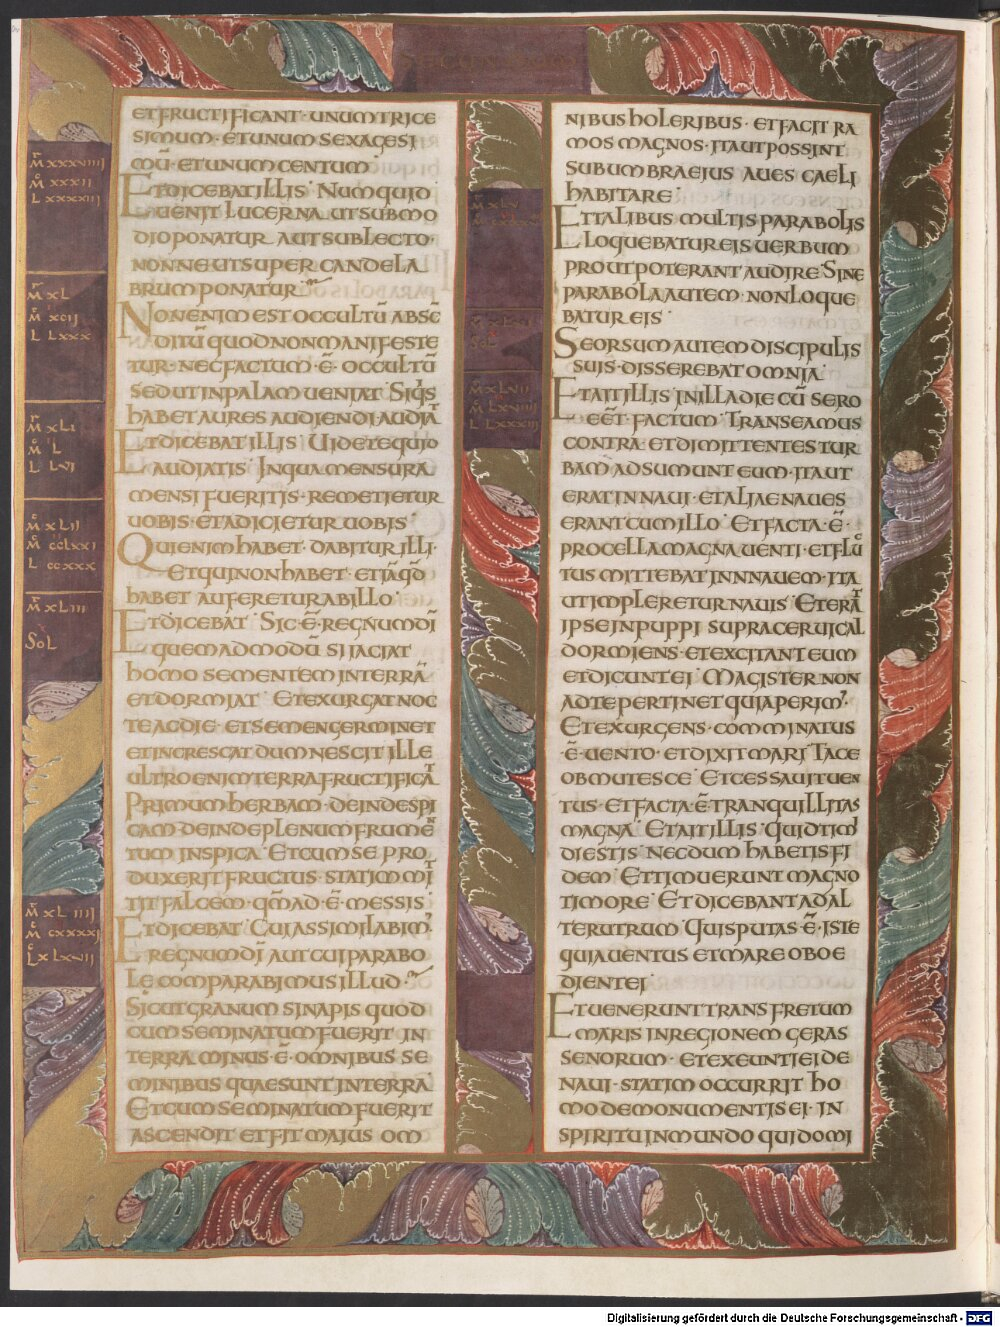 SECUNDUM
ET FRUCTIFICANT · UNUM TRICE
SIMUM · ET UNUM SEXAGESI
MŪ · ET UNUM CENTUM
ET DICEBAT ILLIS NUMQUID
UENIT LUCERNA UT SUB MO
DIO PONATUR AUT SUB LECTO ·
NONNE UT SUPER CANDELA
BRUM PONATUR
NON ENIM EST OCCULTŪ ABSC̄
DITŪ QUOD NON MANIFESTE
TUR · NEC FACTUM · Ē · OCCULTŪ
SED UT IN PALAM UENIAT SIQS
HABET AURES AUDIENDI AUDIAT
ET DICEBAT ILLIS UIDETE QUID
AUDIATIS IN QUA MENSURA
MENSI FUERITIS · REMETIETUR
UOBIS · ET ADICIETUR UOBIS
QUI ENIM HABET · DABITUR ILLI ·
ET QUI NON HABET · ETIĀ QD̄
HABET AUFERETUR AB ILLO
ET DICEBAT SIC · Ē · REGNUM DĪ
QUEMADMODŪ SI IACIAT
HOMO SEMENTEM IN TERRĀ
ET DORMIAT ET EXURGAT NOC
TE AC DIE · ET SEMEN GERMINET
ET INCRESCAT DUM NESCIT ILLE
ULTRO ENIM TERRA FRUCTIFICAT
PRIMUM HERBAM · DEINDE SPI
CAM · DEINDE PLENUM FRUMEN
TUM IN SPICA ET CUM SE PRO
DUXERIT FRUCTUS · STATIM MIT
TIT FALCEM · QM̄ AD · Ē · MESSIS
ET DICEBAT CUI ASSIMILABIM'
REGNUM DĪ AUT CUI PARABO
LE COMPARABIMUS ILLUD ·
SICUT GRANUM SINAPIS QUOD
CUM SEMINATUM FUERIT IN
TERRA MINUS · Ē · OMNIBUS SE
MINIBUS QUAE SUNT IN TERRA
ET CUM SEMINATUM FUERIT
ASCENDIT ET FIT MAIUS OM
NIBUS HOLERIBUS · ET FACIT RA
MOS MAGNOS · ITA UT POSSINT
SUB UMBRA EIUS AUES CAELI
HABITARE
ET TALIBUS MULTIS PARABOLIS
LOQUEBATUR EIS UERBUM
PROUT POTERANT AUDIRE SINE
PARABOLA AUTEM · NON LOQUE
BATUR EIS
SEORSUM AUTEM DISCIPULIS
SUIS · DISSEREBAT OMNIA
ET AIT ILLIS IN ILLA DIE CŪ SERO
EĒT FACTUM TRANSEAMUS
CONTRA · ET DIMITTENTES TUR
BAM · ADSUMUNT EUM · ITA UT
ERAT IN NAUI · ET ALIAE NAUES
ERANT CUM ILLO ET FACTA · Ē ·
PROCELLA MAGNA UENTI · ET FLUC
TUS MITTEBAT INN NAUEM · ITA
UT IMPLERETUR NAUIS ET ERAT
IPSE IN PUPPI SUPRA CERUICAL
DORMIENS · ET EXCITANT EUM
ET DICUNT EI MAGISTER NON
AD TE PERTINET QUIA PERIM'
ET EXURGENS · COMMINATUS
· Ē · UENTO · ET DIXIT MARI TACE
OBMUTESCE ET CESSAUIT UEN
TUS · ET FACTA · Ē TRANQUILLITAS
MAGNA ET AIT ILLIS QUID TIM
DI ESTIS NECDUM HABETIS FI
DEM ET TIMUERUNT MAGNO
TIMORE ET DICEBANT AD AL
TERUTRUM QUIS PUTAS · Ē · ISTE
QUIA UENTUS ET MARE OBOE
DIENT EI
ET UENERUNT TRANS FRETUM
MARIS IN REGIONEM GERAS
SENORUM · ET EXEUNTI EI DE
NAUI · STATIM OCCURRIT HO
MO DE MONUMENTIS EI · IN
SPIRITU INMUNDO QUI DOMI
M XXXVIIII
M XXXII
L LXXXIII
M XL
M XCII
L LXXX
M XLI
M L
L LVI
M XLII
M CCLXXI
L CCXXX
M XLIII
SOL
M XLIIII
M CXXXXI
L XLXVII
M XLV
SOL
M XLVII
M LXVIIII
L LXXXIII
Digitalisierung gefördert durch die Deutsche Forschungsgemeinschaft - DFG